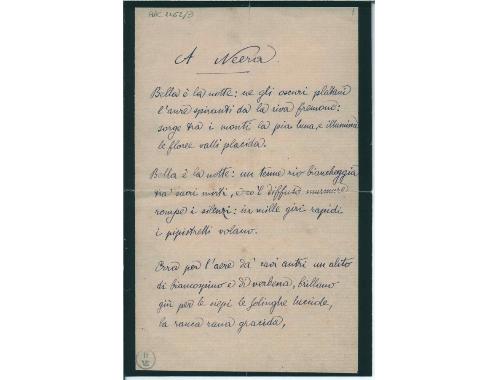 A Neera.
Bella è la notte: ne gli oscuri platani
l'aure spiranti da la riva fremono:
sorge tra i monti la pia luna, e illumina
le floree valli placida.
Bella è la notte: un tenue rio biancheggia
tra' sacri mirti, e co 'l diffuso murmure
rompe i silenzi: in mille giri rapidi
i pipistrelli volano.
Erra per l'aere da' cavi antri un alito
di biancospino e di verbena, brillano
giù per le siepi le solinghe lucciole,
la rauca rana gracida,